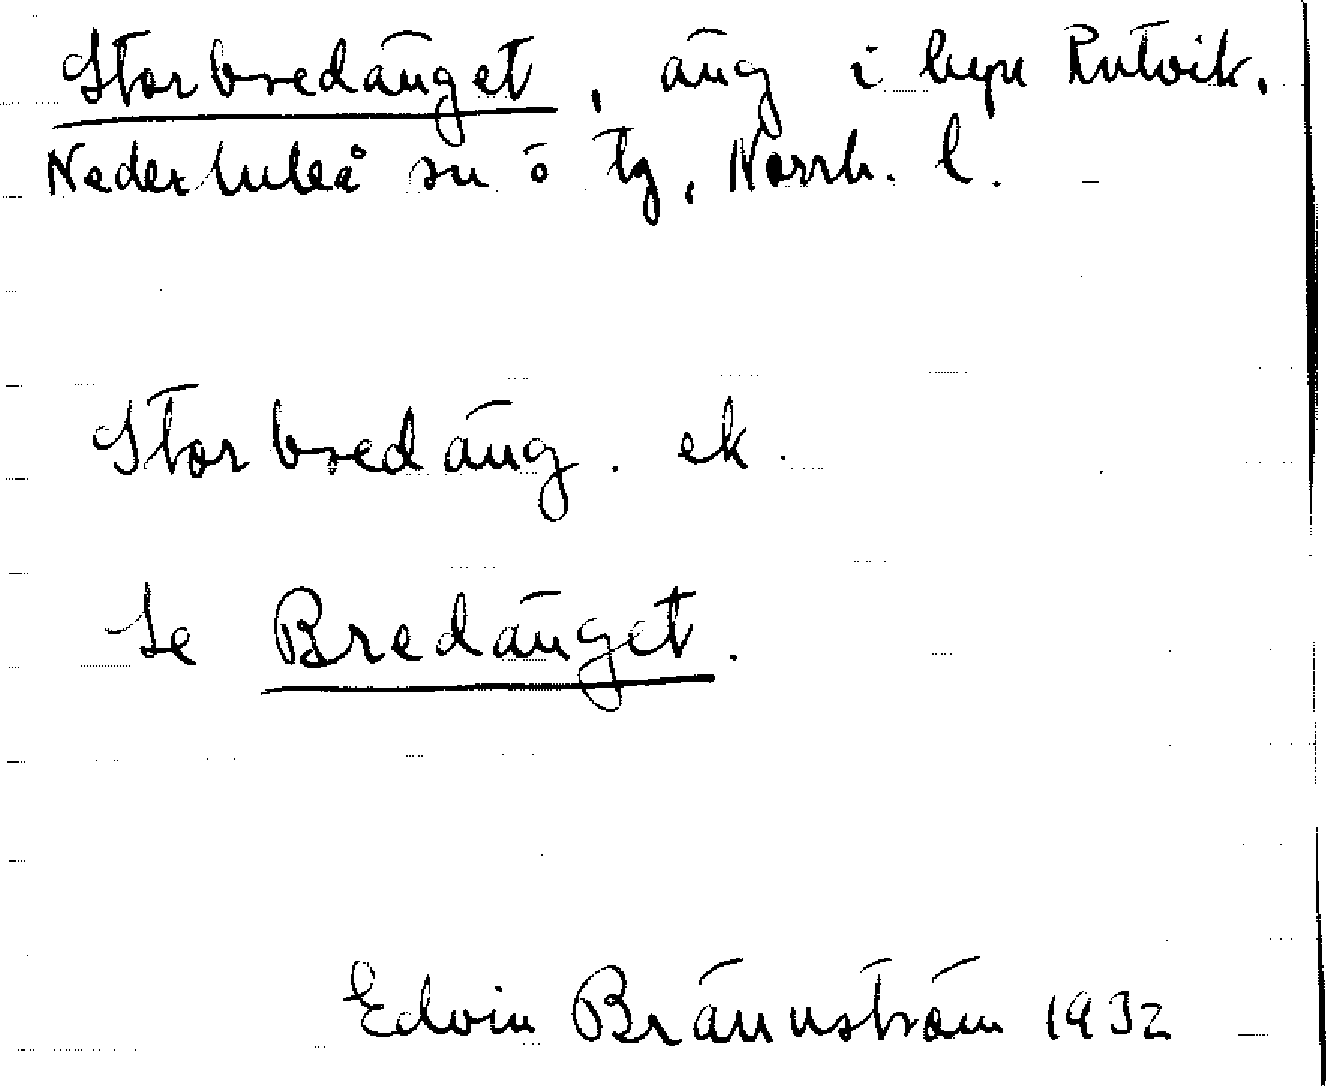 Storbredänget, äng i byn Rutvik,
Nederluleå sn ö tg, Norrb. l.
Storbredäng. ek.
Se Bredänget.
Edvin Brännström 1932